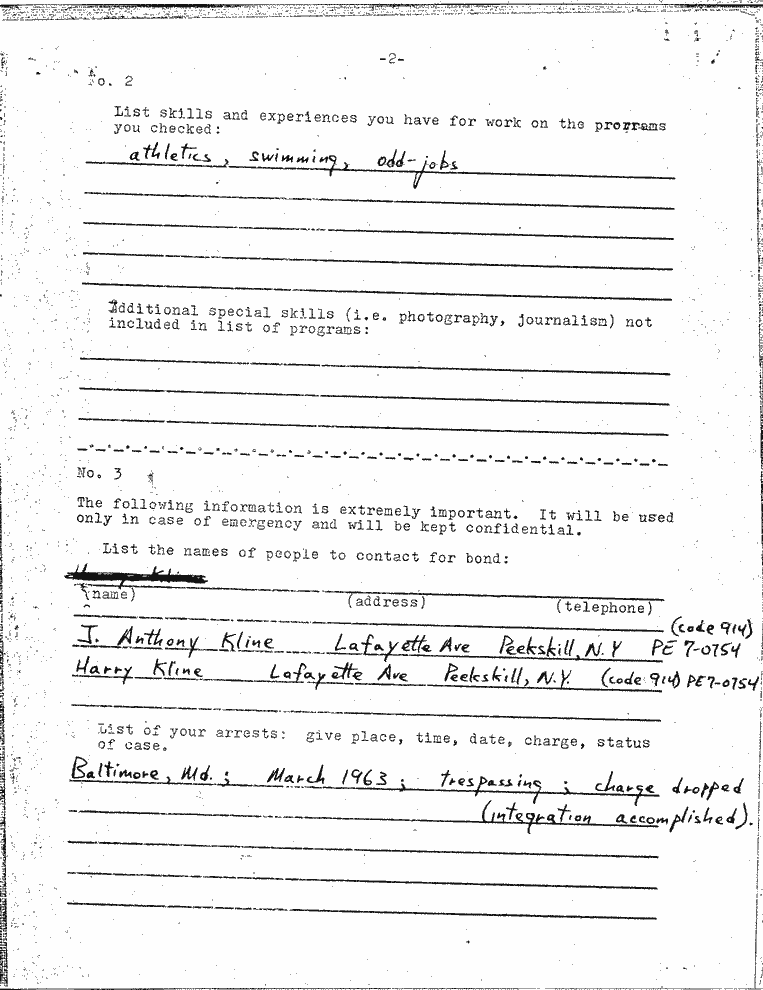 -2-
No. 2
List skills and experiences you have for work on the programs
you checked:
athletics, swimming, odd-jobs
Additional special skills (i.e. photography, journalism) not
included in list of programs:
No. 3
The following information is extremely important. It will be used
only in case of emergency and will be kept confidential.
List the names of people to contact for bond:
(name) (address) (telephone)
(code 914)
J. Anthony Kline Lafayette Ave Peekskill, N.Y PE 7-0754
Harry Kline Lafayette Ave Peekskill, N.Y. (code 914) PE7-0754
List of your arrests: give place, time, date, charge, status
of case.
Baltimore, Md.; March 1963; trespassing; charge dropped
(integration accomplished).